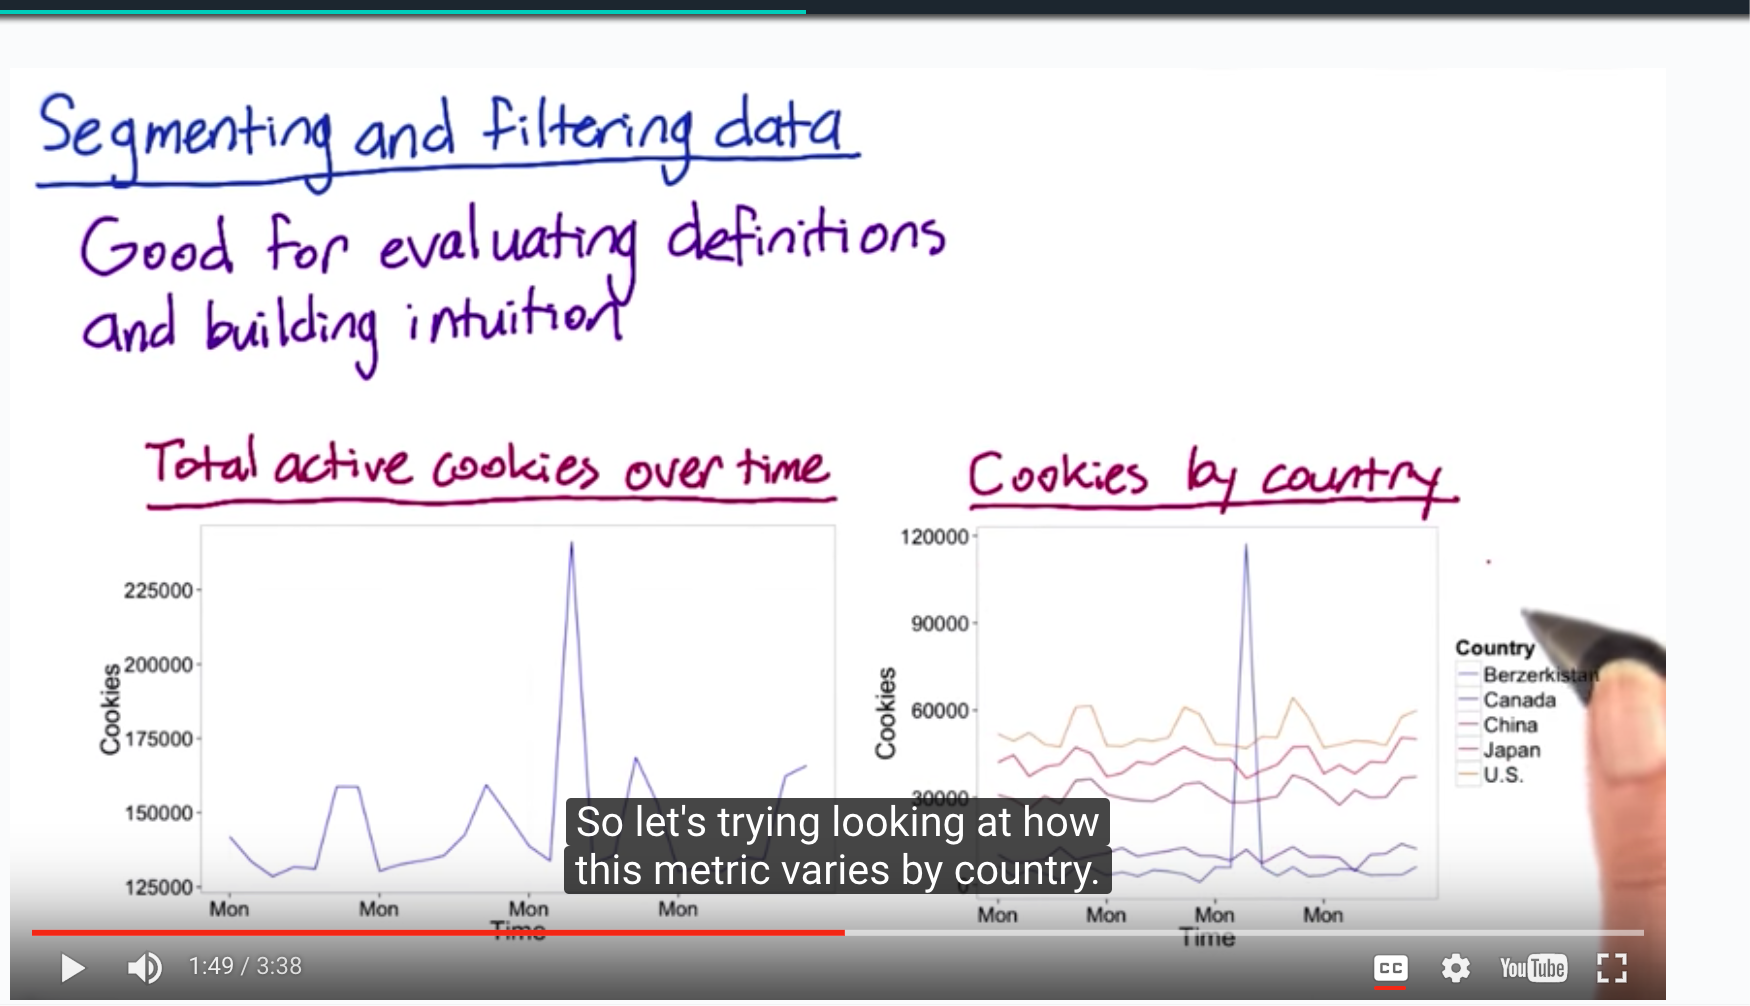 Segmenting and filtering data
Good for evaluating definitions
and building intuition
Total active cookies over time
Cookies by country
225000
200000
175000
150000
125000
Cookies
Mon Mon Mon Mon
Time
120000
90000
60000
30000
0
Cookies
Mon Mon Mon Mon
Time
Country
Berzerkistan
Canada
China
Japan
U.S.
So let's trying looking at how
this metric varies by country.
1:49 / 3:38
CC
YouTube